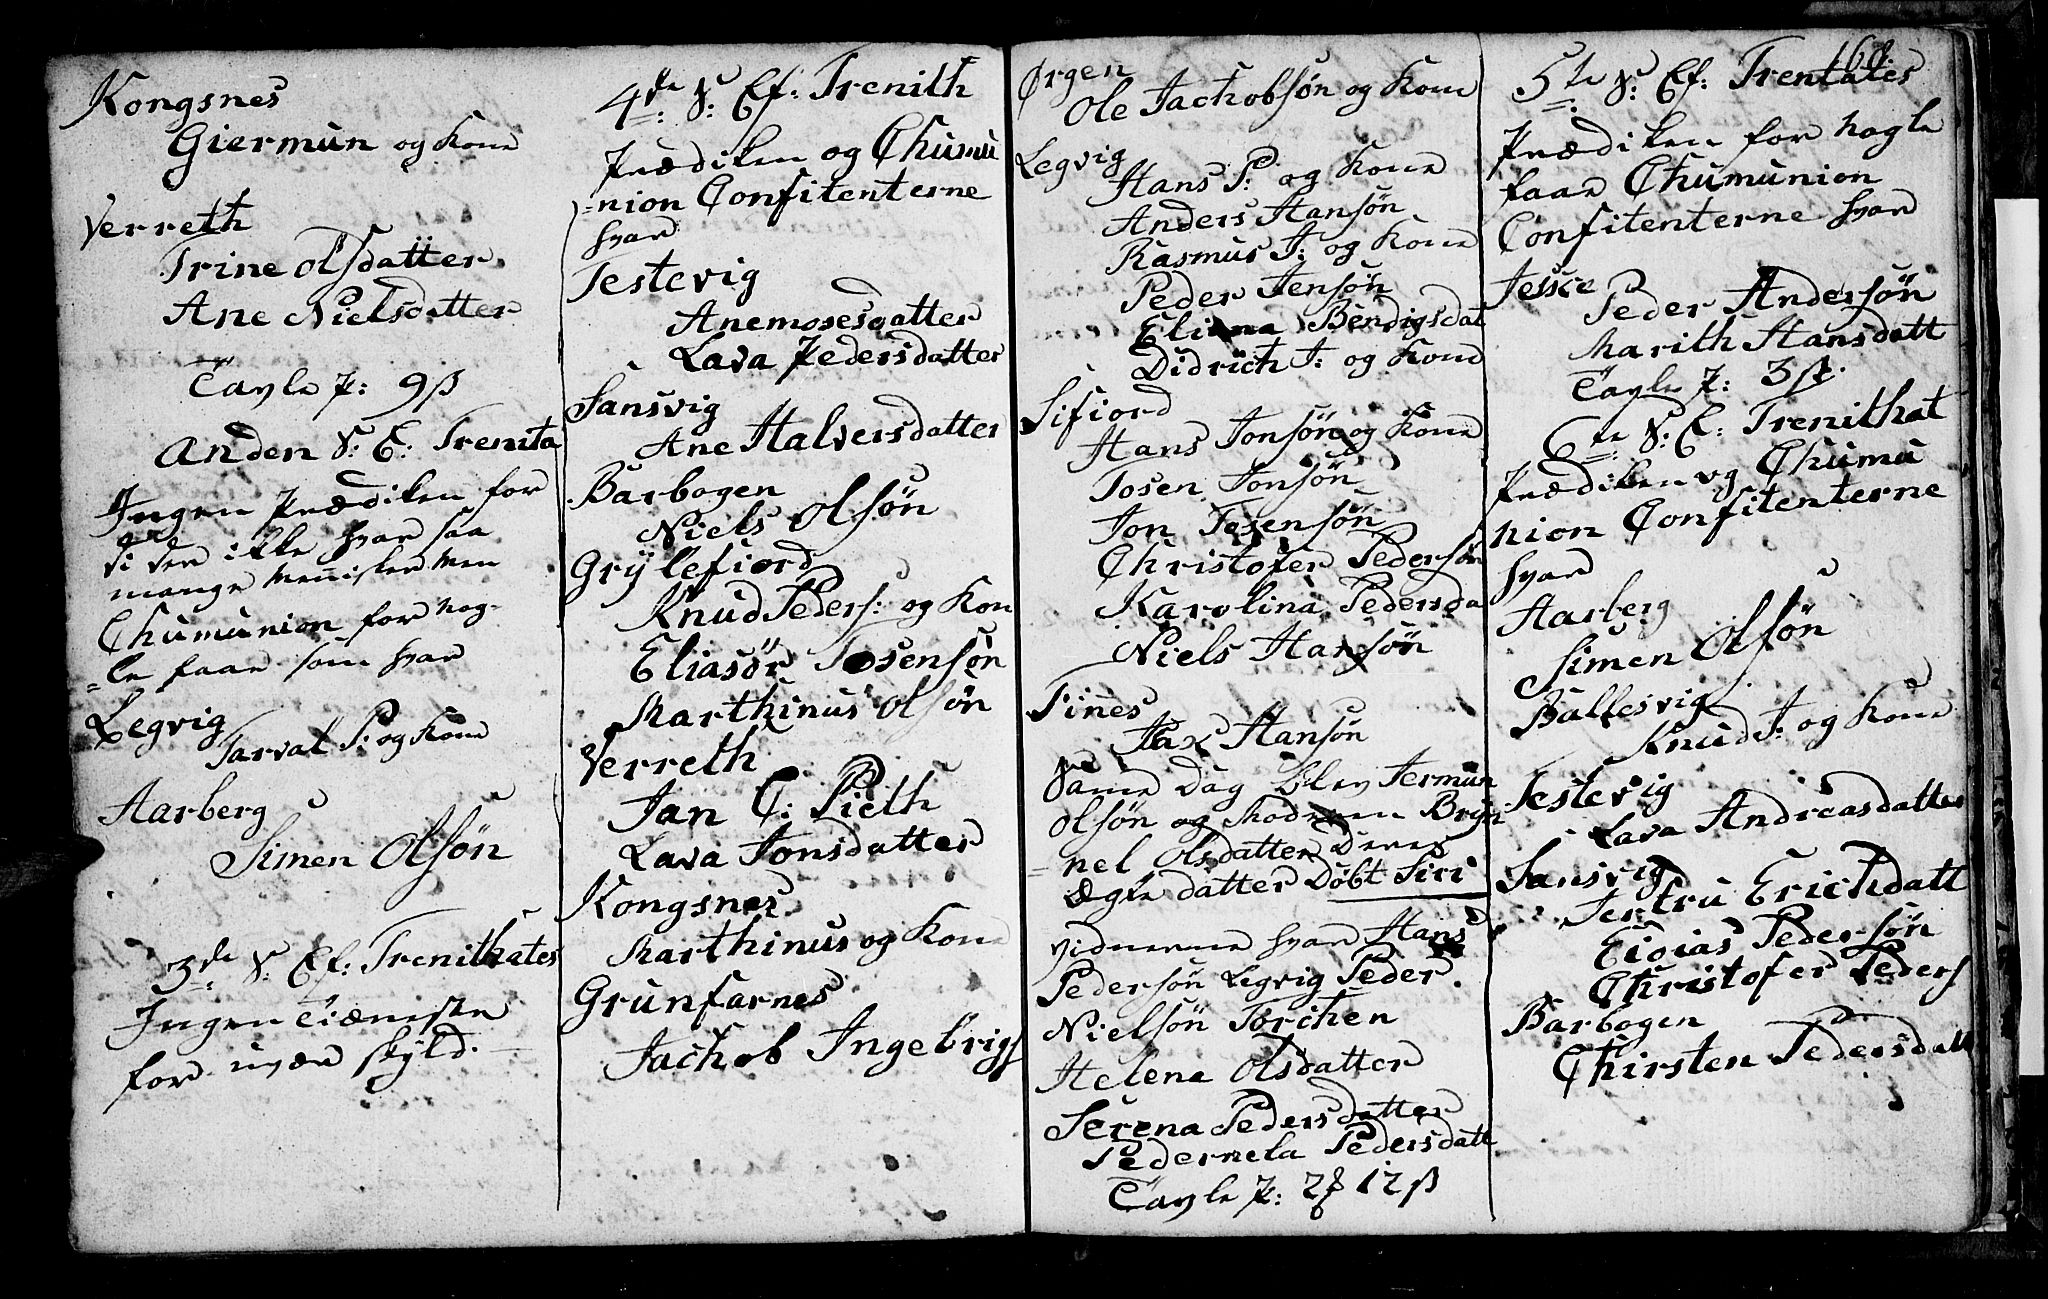 Kongsnes
Giermün og Kone
Verreth
Trine Olsdatter
Ane Nielsdatter
Tavle P: 9 ß
Anden S: E: Trenita
Ingen Prædiken for
di der ikke hvar saa
mange Menisker men
Chumunion for nog-
=le faae som hvar
Legvig
Tarval P: og Kone
Aarberg
Simen Olsön
3de S: Ef: Trenithates
Ingen Tiæniste
for uvær skyld.
4de S: Ef: Trenith
Prædiken og Chumu
=nion Confitenterne
hvar
Testevig
Anemosesdatter
Lava Pedersdatter
Sansvig
Ane Halversdatter
Barbogen
Niels Olsön
Grÿlefiord
Knud Peders: og Kon
Eliasör Tosensön
Marthinus Olsön
Verreth
Jan C: Pieth
Lava Jonsdatter
Kongsnes
Marthinus og Kone
Grunfarnes
Jachob Ingebrigs
160
Ørgen
Ole Jachobsön og Kone
Legvig
Hans P: og Kone
Anders Hansön
Rasmus J: og Kone
Peder Jensön
Eliana Bendigsdat
Didrich J: og Kone
Sifiord
Hans Jonsön og Kone
Tosen Jonsön
Jon Tosensön
Christofer Pedersön
Karolina Pedersda
Niels Hansön
Fines
Jax Hansön
Same Dag blev Jermun
Olsön og Moderen Bryn
=nel Olsdatter Deres
Ægte datter Döbt Siri
vidnerne hvar Hans
Pedersön Legvig Peder
Nielsön Torchen
Helena Olsdatter
Serena Pedersdatter
Pedernela Pedersdatt
Tavle P: 2 ƒ 12 ß
5te S: Ef: Trentates
Prædiken for nogle
faae Chumunion
Confitenterne hvar
Jessce
Peder Andersön
Marith Hansdatt
Tavle P: 3 ß.
6te S: E: Trenithat
Prædiken og Chumu
nion Confitenterne
hvar
Aarberg
Simen Olsön
Ballesvig
Knud J: og Kone
Testevig
Lava Andreasdatter
Sansvig
Jertru Erichdatt
Eioias Pedersön
Christofer Peders
Barbogen
Chirsten Pedersdatt